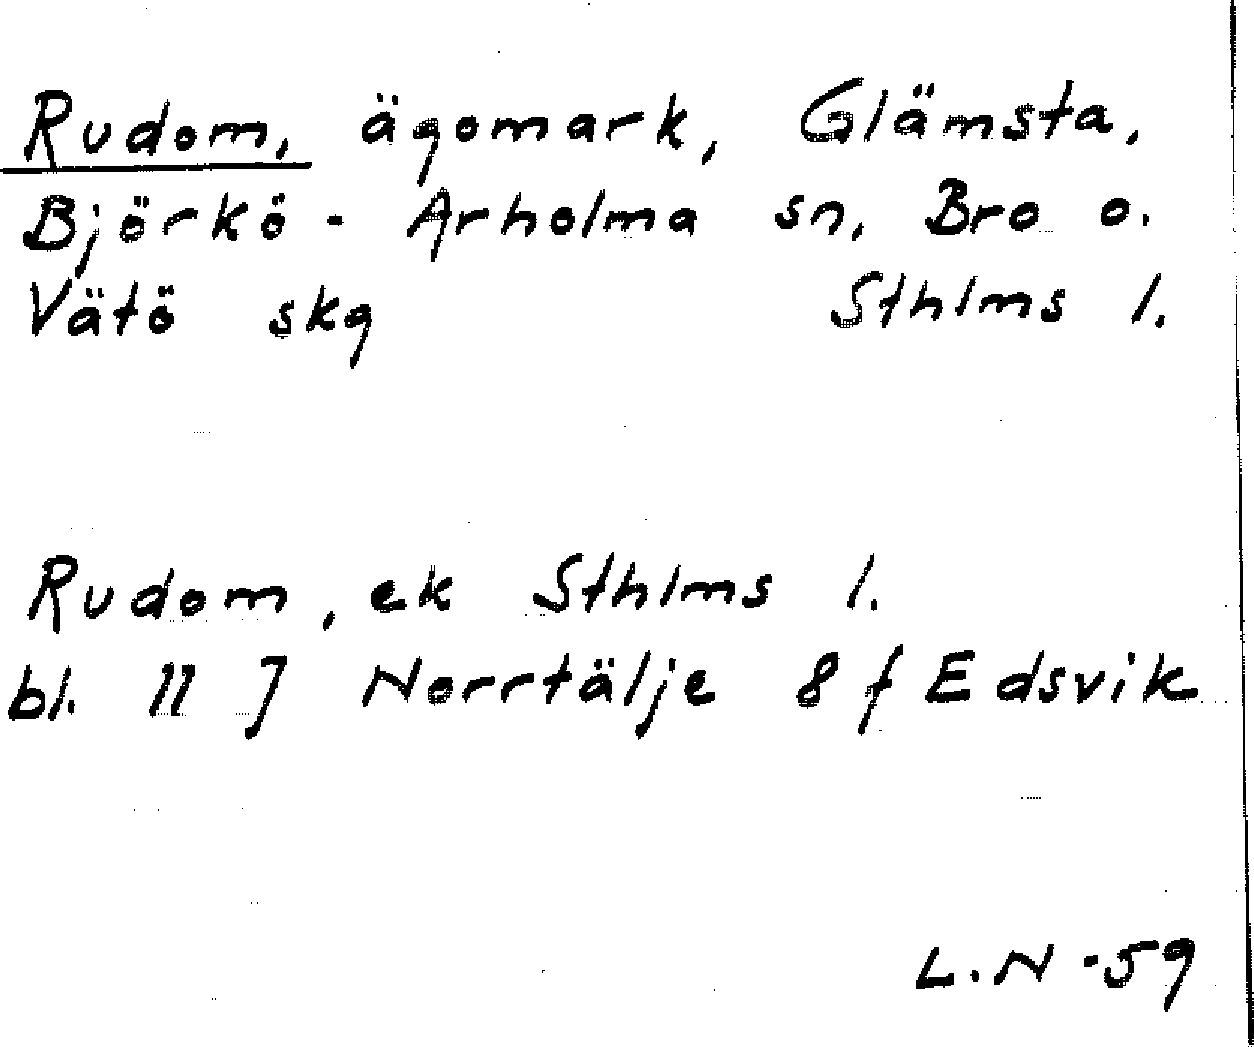 Rudom, ägomark, Glämsta,
Björkö - Arholma sn, Bro o.
Vätö skg Sthlms l.
Rudom, ek Sthlms l.
bl. 11 J Norrtälje 8 f Edsvik
L.N -59